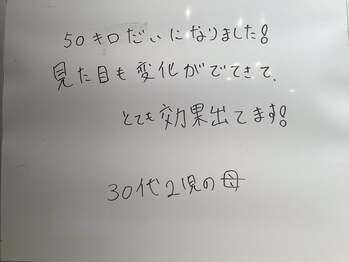 50キロだいになりました!
見た目も変化がでてきて、
とても効果出てます!
30代2児の母